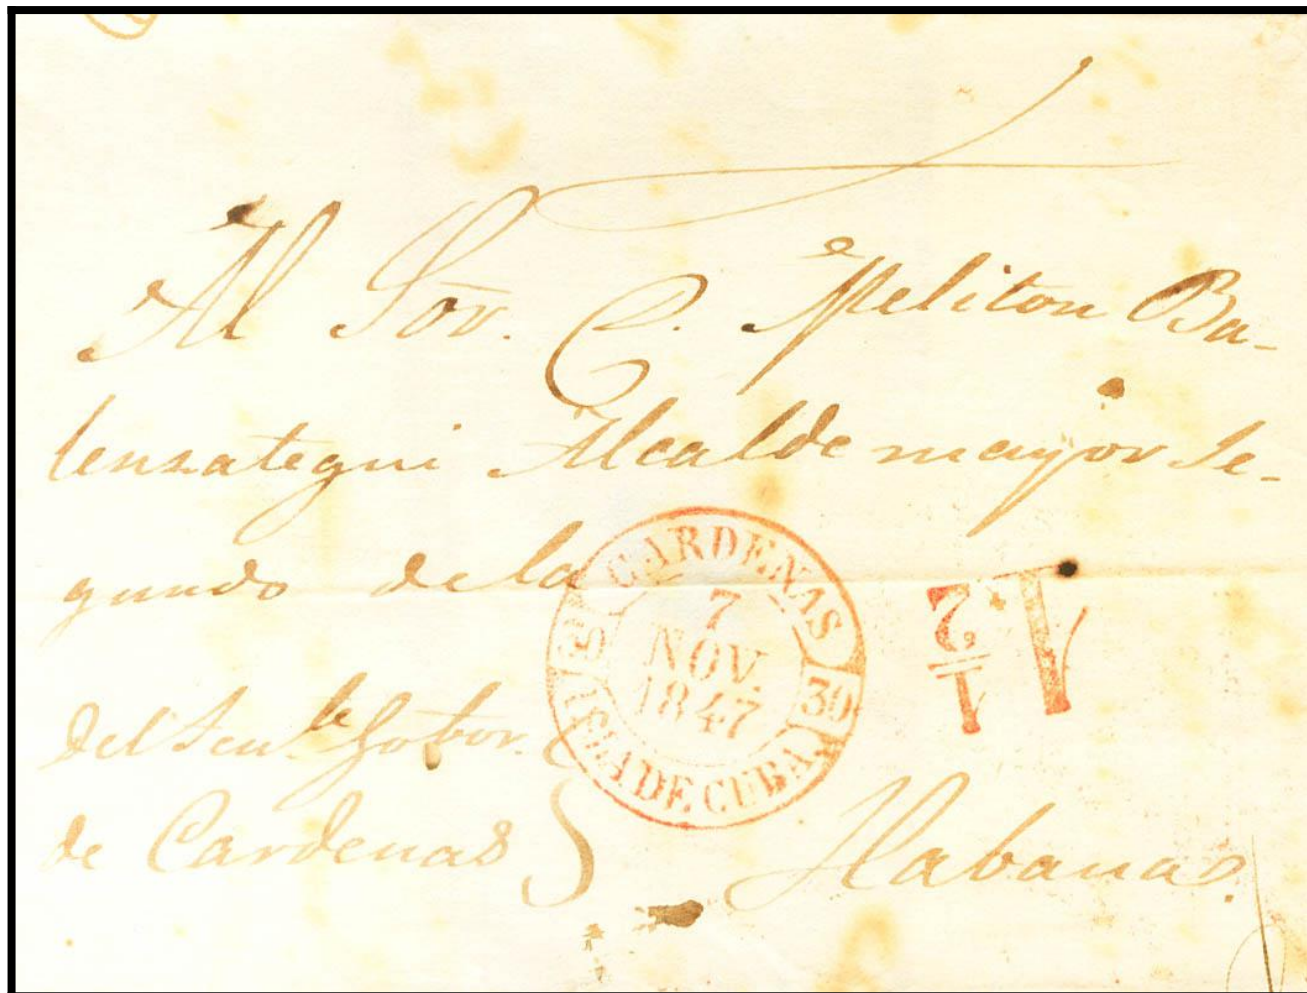 Al Sōr. C. Meliton Ba-
lenzategui Alcalde mayor Se-
gundo de la
CARDENAS
7
NOV
1847
ISLA DE CUBA
30
1 1/2
del Ten.te Gobor.
de Cardenas
Habana.